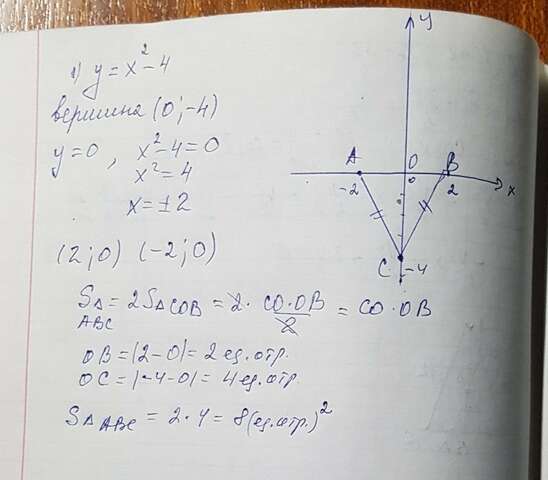 1) y = x² - 4
вершина (0; -4)
y = 0, x² - 4 = 0
x² = 4
x = ±2
(2; 0) (-2; 0)
S△ABC = 2S△COB = 2 · CO·OB/2 = CO·OB
OB = |2-0| = 2 ед.отр.
OC = |-4-0| = 4 ед.отр.
S△ABC = 2·4 = 8 (ед.отр.)²
y
A O B
-2 2 x
C -4